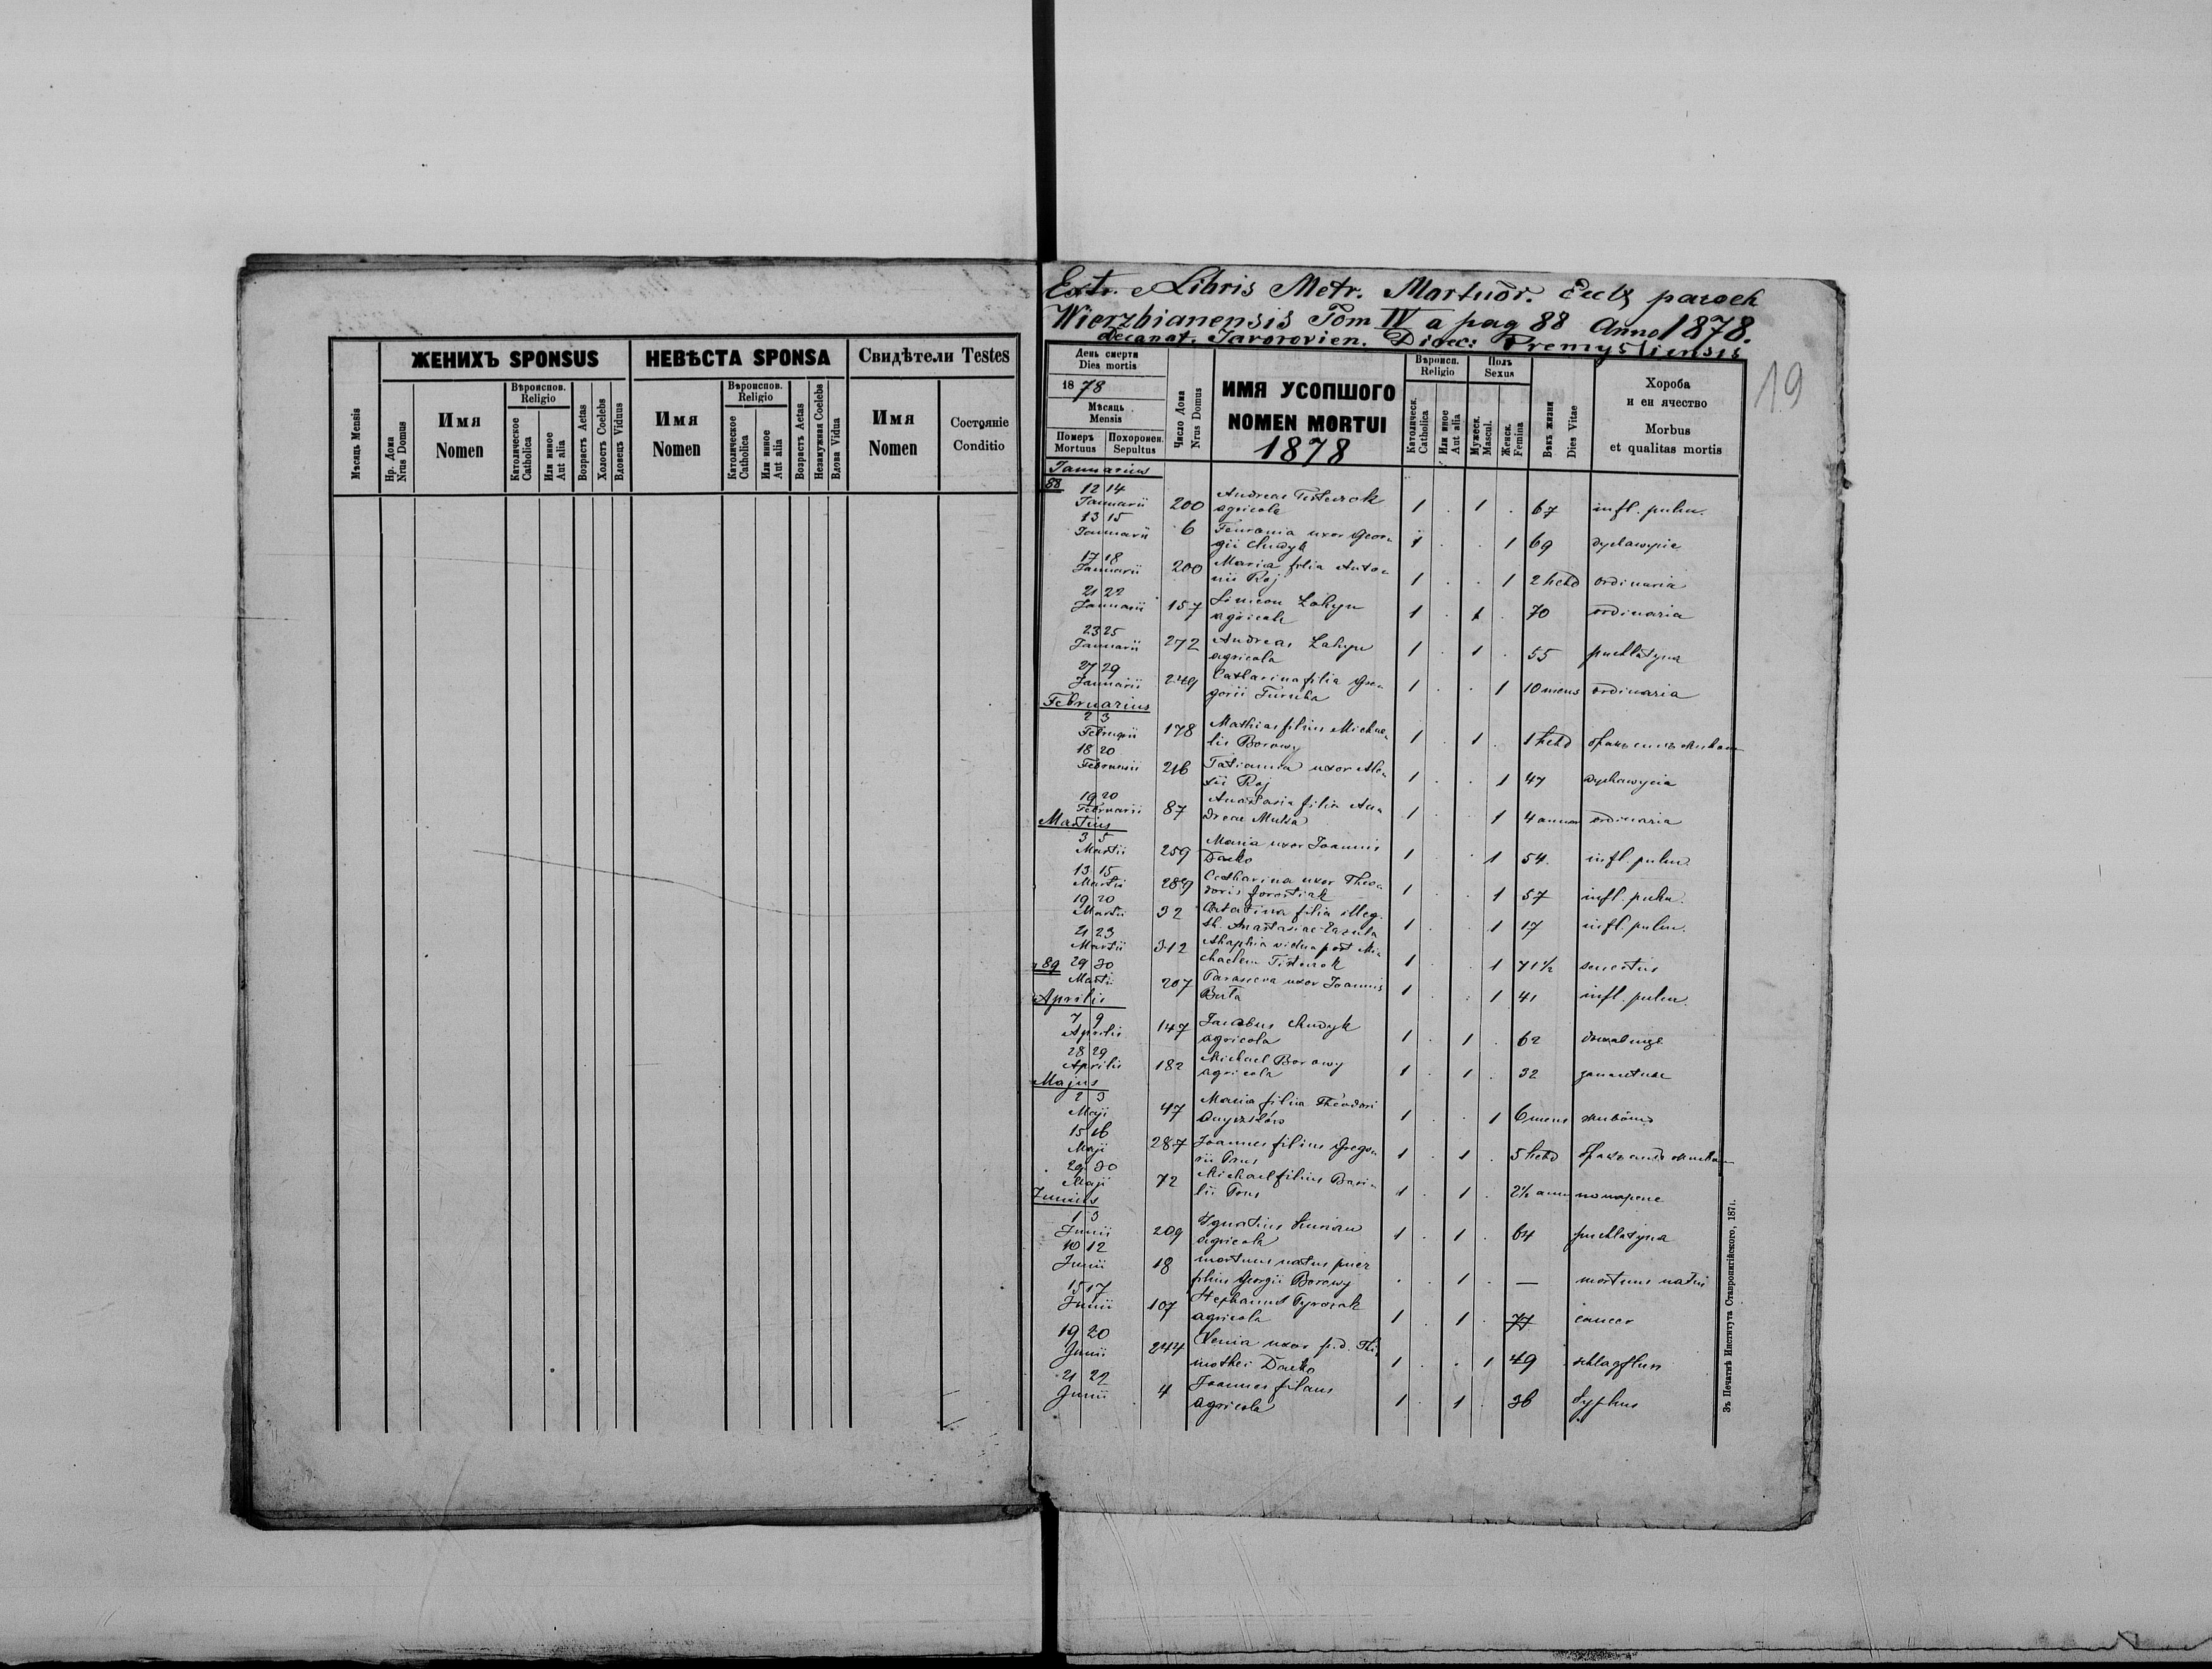 ЖЕНИХЪ SPONSUS
НЕВѢСТА SPONSA
Свидѣтели Testes
Мѣсяць Mensis
Нр. Дома
Nrus Domus
Имя
Nomen
Вѣроиспов.
Religio
Католическое
Catholica
Или иное
Aut alia
Возрастъ Aetas
Холостъ Coelebs
Вдовецъ Viduus
Имя
Nomen
Вѣроиспов.
Religio
Католическое
Catholica
Или иное
Aut alia
Возрастъ Aetas
Незамужная Coelebs
Вдова Vidua
Имя
Nomen
Состояніе
Conditio
Extr. e Libris Metr. Mortuor. Eccls paroch
Wierzbianensis Tom IV a pag 88 Anno 1878.
Decanat. Javorovien. Dioec: Premysliensis
19
День смерти
Dies mortis
1878
Мѣсяць
Mensis
Померъ
Mortuus
Похоронен.
Sepultus
Число Дома
Nrus Domus
ИМЯ УСОПШОГО
NOMEN MORTUI
1878
Вѣроисп.
Religio
Католическ.
Catholica
Или иное
Aut alia
Полъ
Sexus
Мужеск.
Mascul.
Женск.
Femina
Вѣкъ жизни
Dies Vitae
Хороба
и еи ячество
Morbus
et qualitas mortis
Januarius
88
12 14
Januarii 200 Andreas 1 . 1 . 67 infl. pulm.
agricola
13 15
Januarii 6 uxor Geor-
gii Chudyk 1 . . 1 69
17 18
Januarii 200 Maria filia Anto-
nii Roj 1 . . 1 2 hebd ordinaria
21 22
Januarii 157 Simeon Zahyn
agricola 1 . 1 . 70 ordinaria
23 25
Januarii 272 Andreas Zahyn
agricola 1 . 1 . 55 puchlatyna
27 29
Januarii 249 Catharina filia Gre-
gorii 1 . . 1 10 mens ordinaria
Februarius
2 3
Februarii 178 Mathias filius Michae-
lis Borowy 1 . 1 . 1 hebd
18 20
Februarii 216 Tatianna uxor Ale-
xii Roj 1 . . 1 47 dychawycia
19 20
Februarii 87 Anastasia filia An-
dreae 1 . . 1 4 annor ordinaria
Martius
3 5
Martii 259 Maria uxor Joannis
Dacko 1 . . 1 54. infl. pulm.
13 15
Martii 289 Catharina uxor Theo-
doris 1 . . 1 57 infl. pulm.
19 20
Martii 32 filia illeg.
Anastasiae 1 . . 1 17 infl. pulm.
21 23
Martii 312 Ahaphia vidua post Mi-
chaelem 1 . . 1 71 1/2 senectus
89 29 30
Martii 207 Parasceva uxor Joannis
1 . . 1 41 infl. pulm.
Aprilis
7 9
Aprilis 147 Jacobus Chudyk
agricola 1 . 1 . 62
28 29
Aprilis 182 Michael Borowy
agricola 1 . 1 . 32
Majus
2 3
Maji 47 Maria filia Theodori
1 . . 1 6 mens
15 16
Maji 287 Joannes filius Grego-
rii 1 . 1 . 5 hebd
29 30
Maji 72 Michael filius Basi-
lii 1 . 1 . 2 1/2 ann
Junius
1 3
Junii 209 Ignatius
agricola 1 . 1 . 64 puchlatyna
10 12
Junii 18 mortuus natus puer
filius Georgii Borowy . . 1 . — mortuus natus
15 17
Junii 107 Stephanus
agricola 1 . 1 . 77 cancer
19 20
Junii 244 Xenia uxor p.d. Thi-
mothei Dacko 1 . . 1 49 schlagfluss
21 22
Junii 4 Joannes
agricola 1 . 1 . 36 Typhus
Зъ Печатнѣ Института Ставропигійского, 1871.